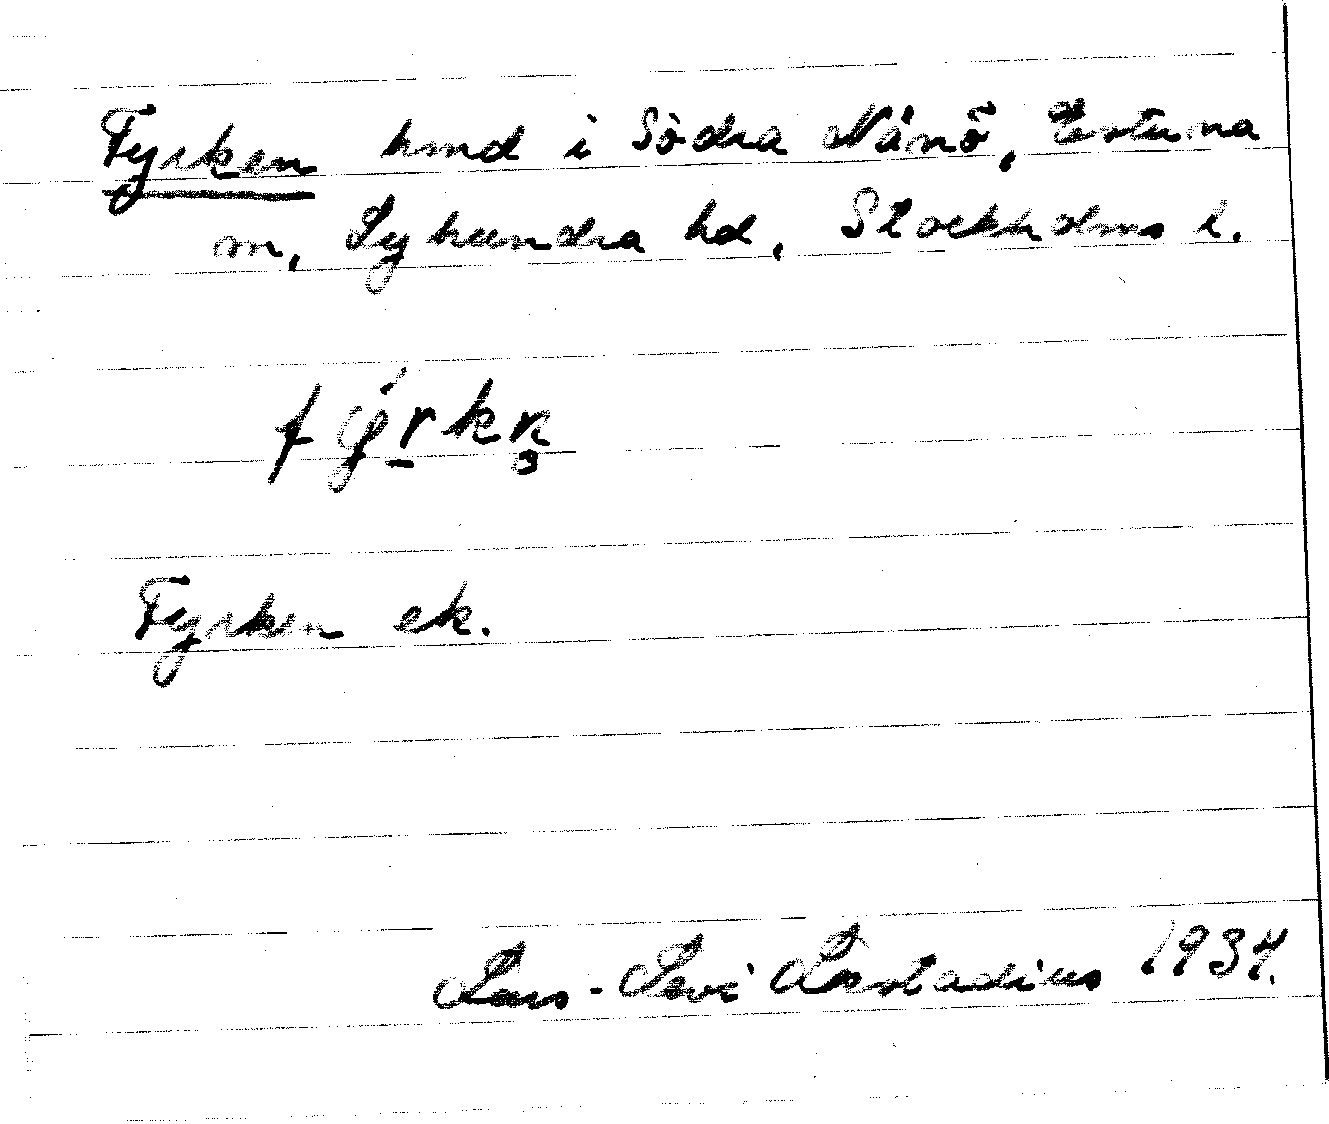 Fyrken hmd i Södra Nånö, Estuna
m, Lyhundra hd, Stockholms l.
fýrkn̥
Fyrken ek.
Lars-Levi Læstadius 1934.